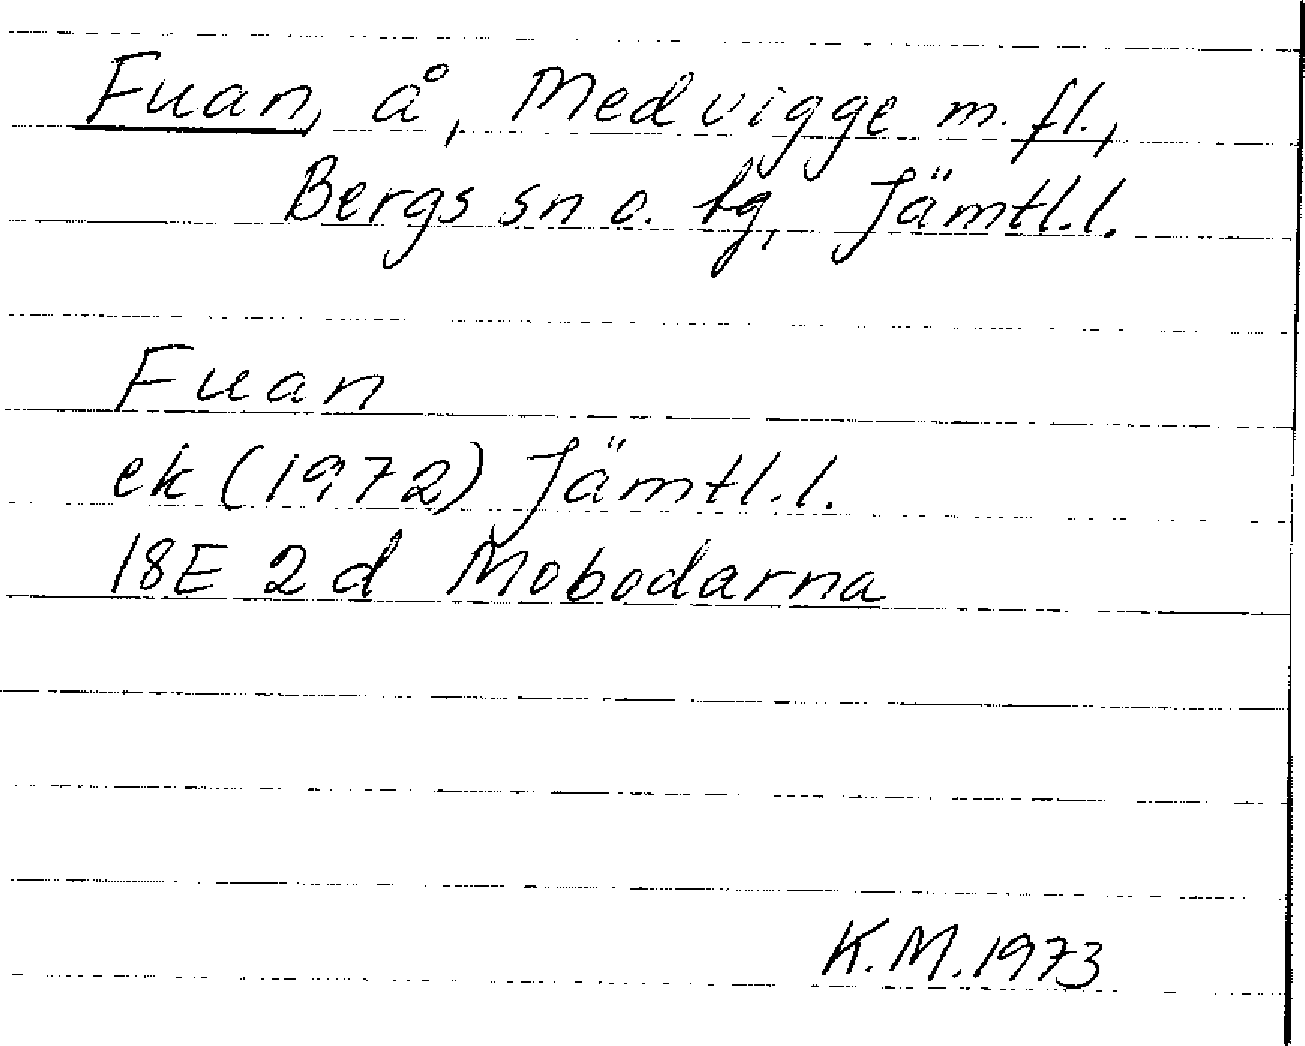 Fuan, å, Medvigge m. fl.,
Bergs sn o. tg, Jämtl.l.
Fuan
ek (1972) Jämtl.l.
18E 2d Mobodarna
K.M. 1973